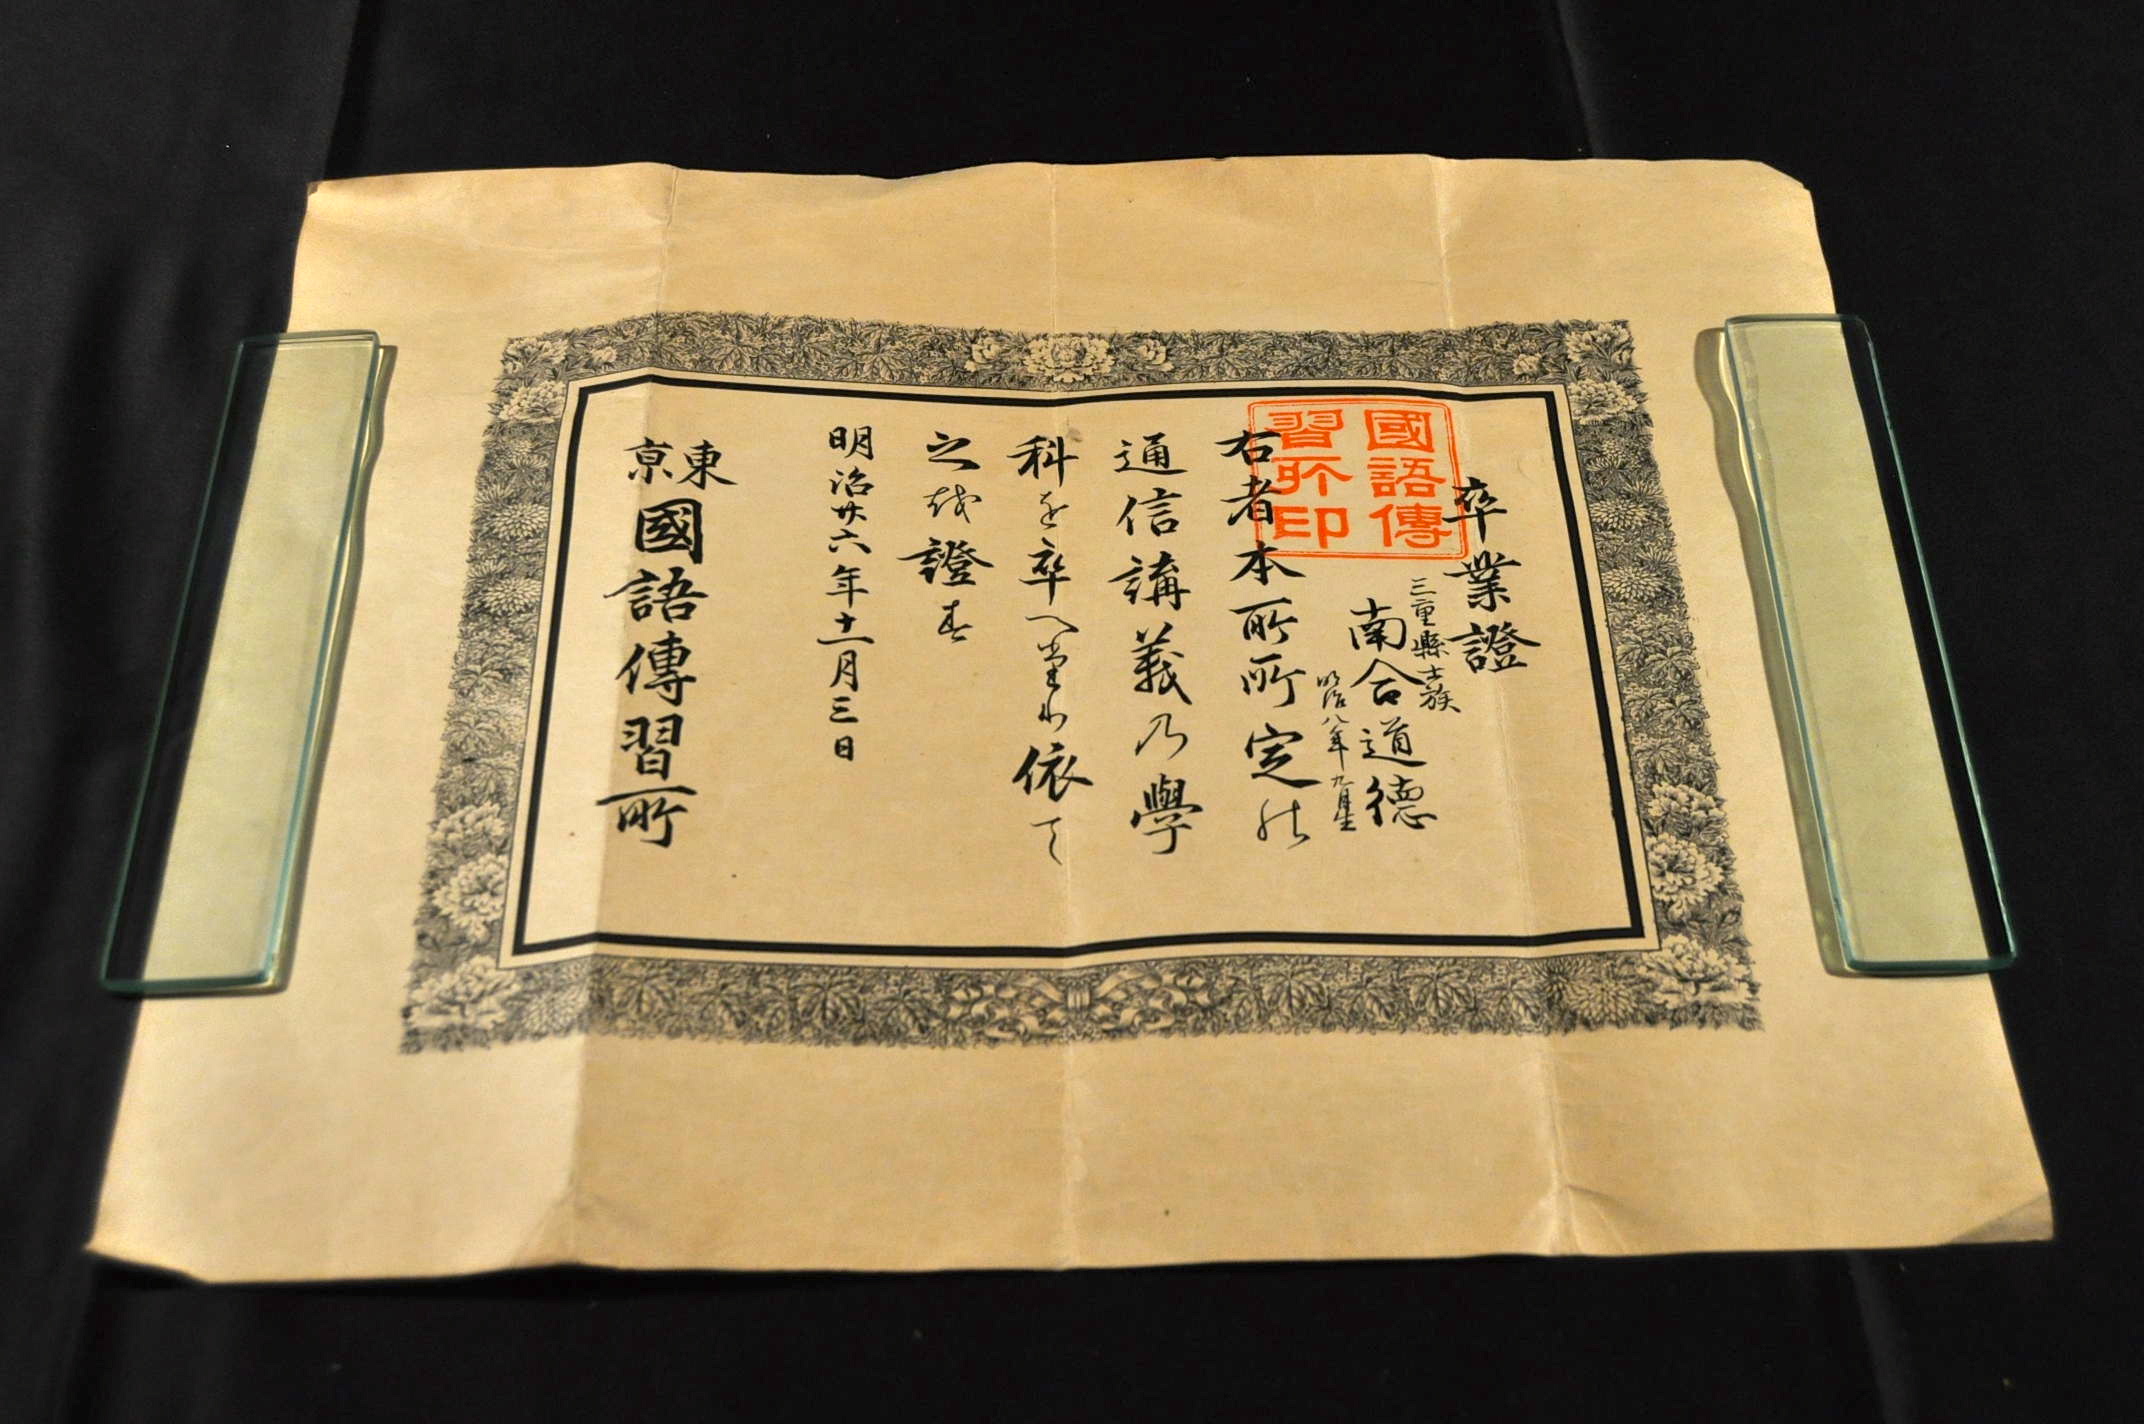 卒業證
三重縣士族
南合道德
明治八年九月生
右者本所所定の
通信講義乃學
科を卒へ
依て
之を證す
明治廿六年十一月三日
東京
國語傳習所
國語傳習所印